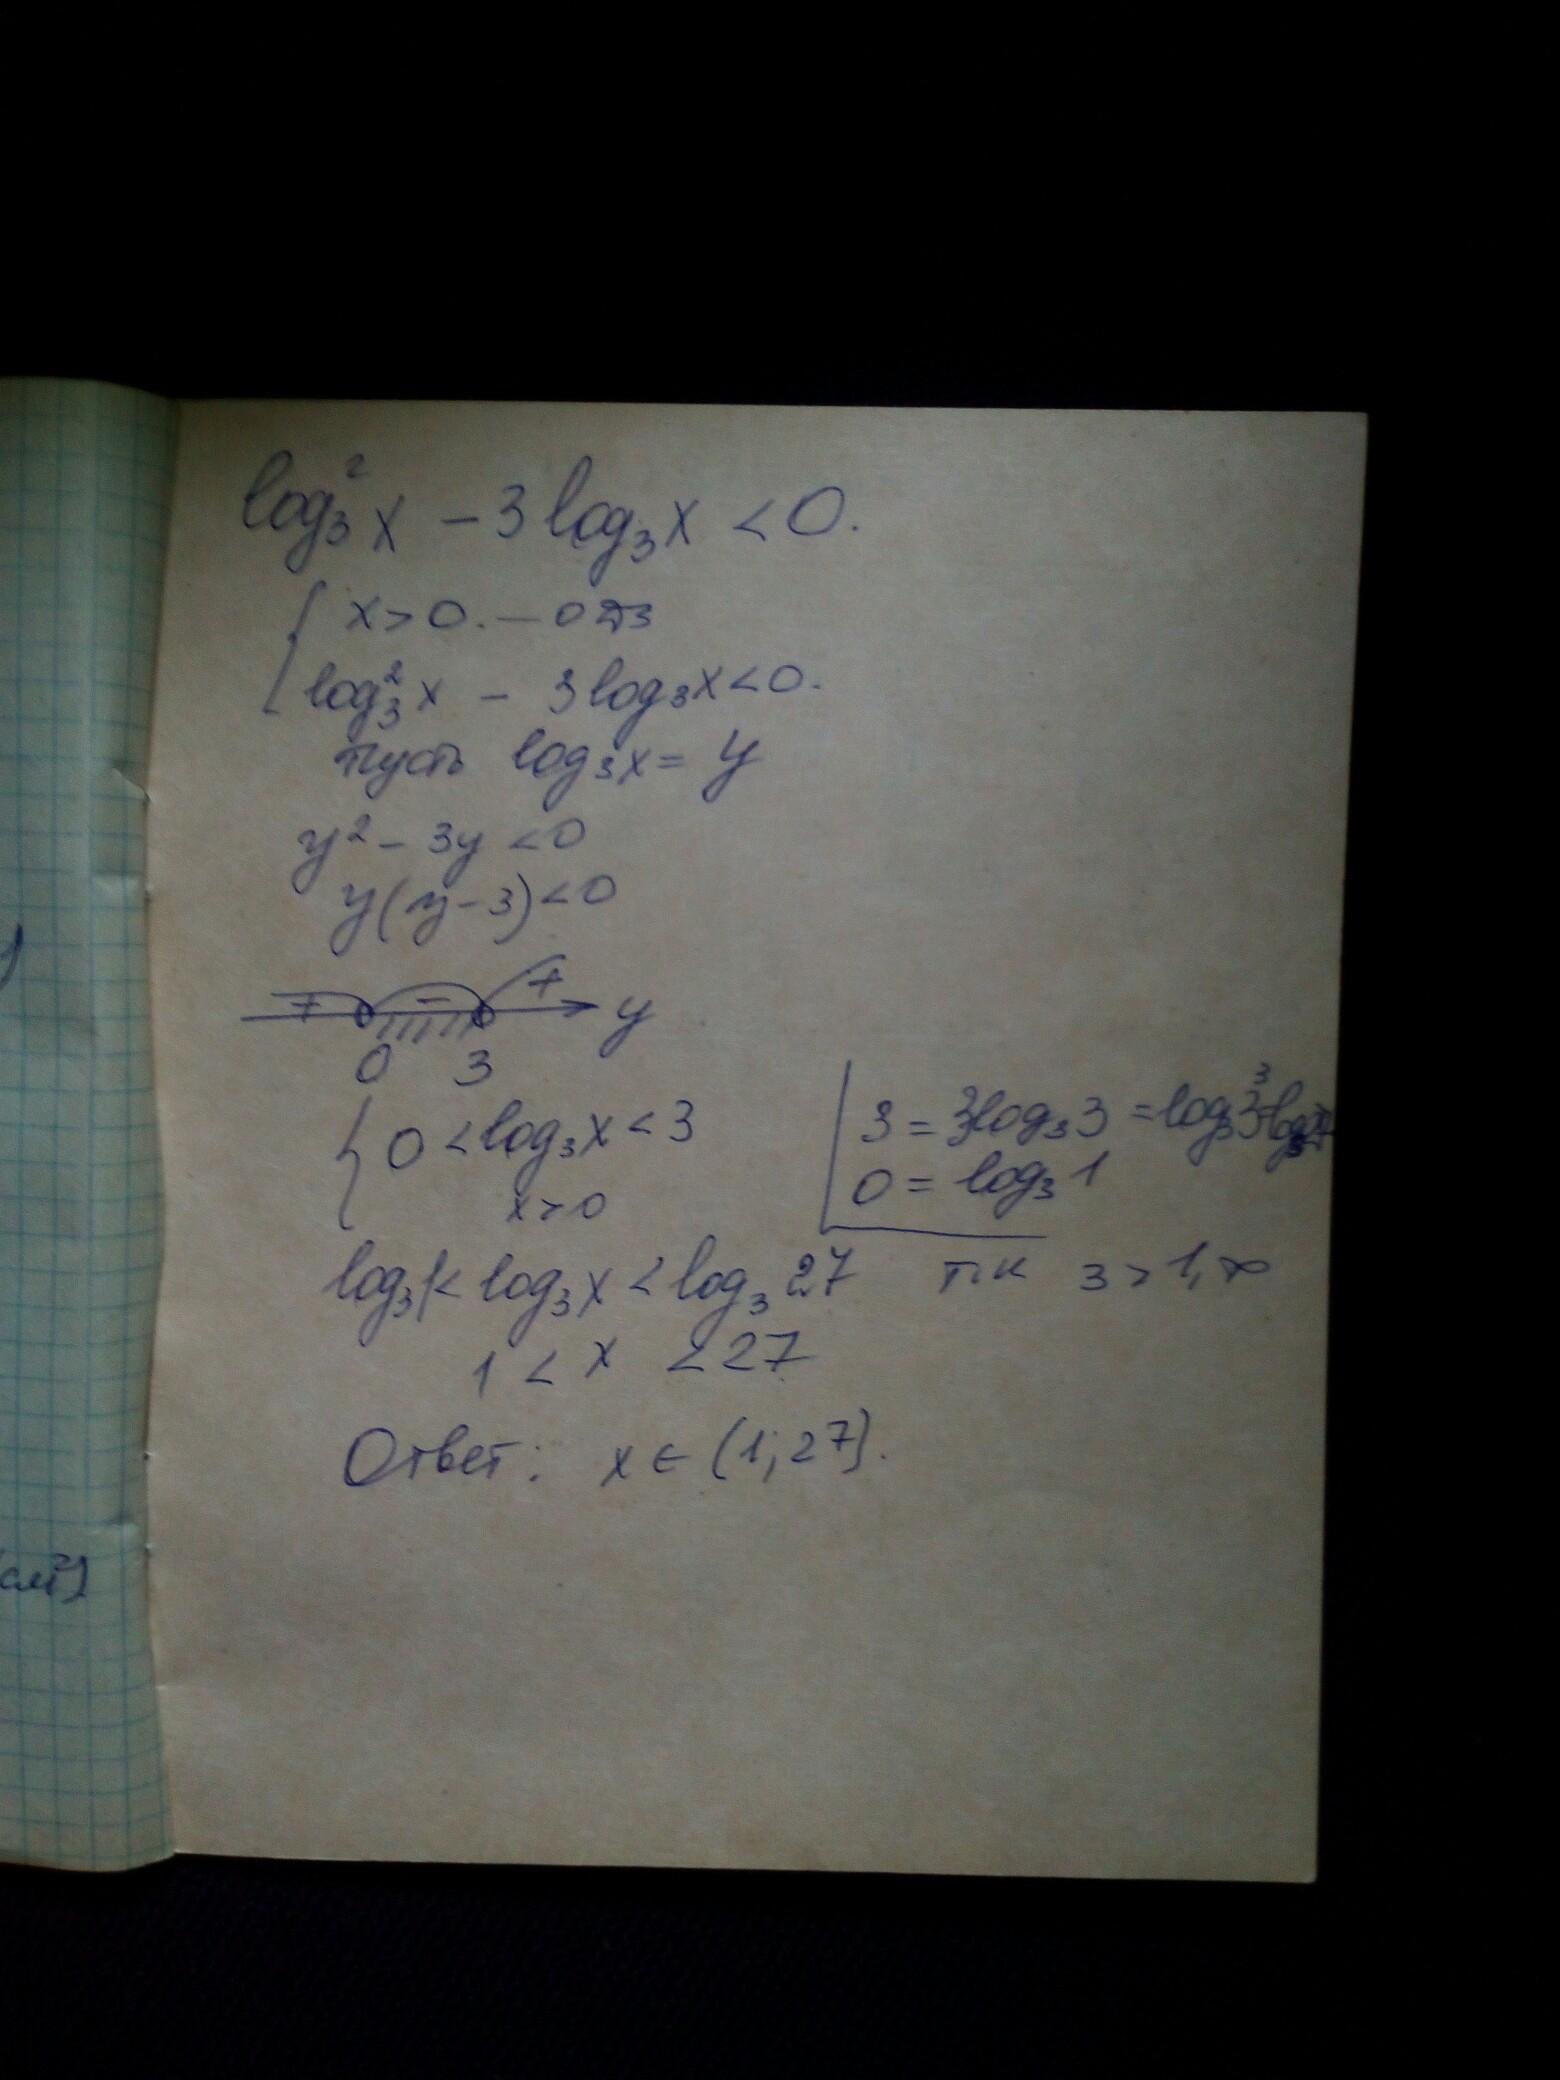 log₃²x − 3log₃x < 0.
x > 0. — ОДЗ
log₃²x − 3log₃x < 0.
Пусть log₃x = y
y² − 3y < 0
y(y − 3) < 0
+ − + y
0 3
0 < log₃x < 3
x > 0
3 = 3log₃3 = log₃3³ = log₃27
0 = log₃1
log₃1 < log₃x < log₃27 т.к 3 > 1, то
1 < x < 27
Ответ: x ∈ (1; 27).
см²)